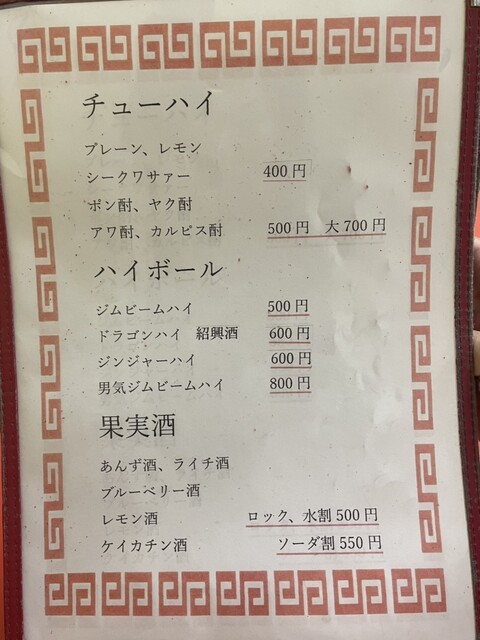 チューハイ
プレーン、レモン
シークワサァー 400円
ポン酎、ヤク酎
アワ酎、カルピス酎 500円 大700円
ハイボール
ジムビームハイ 500円
ドラゴンハイ 紹興酒 600円
ジンジャーハイ 600円
男気ジムビームハイ 800円
果実酒
あんず酒、ライチ酒
ブルーベリー酒
レモン酒 ロック、水割500円
ケイカチン酒 ソーダ割550円